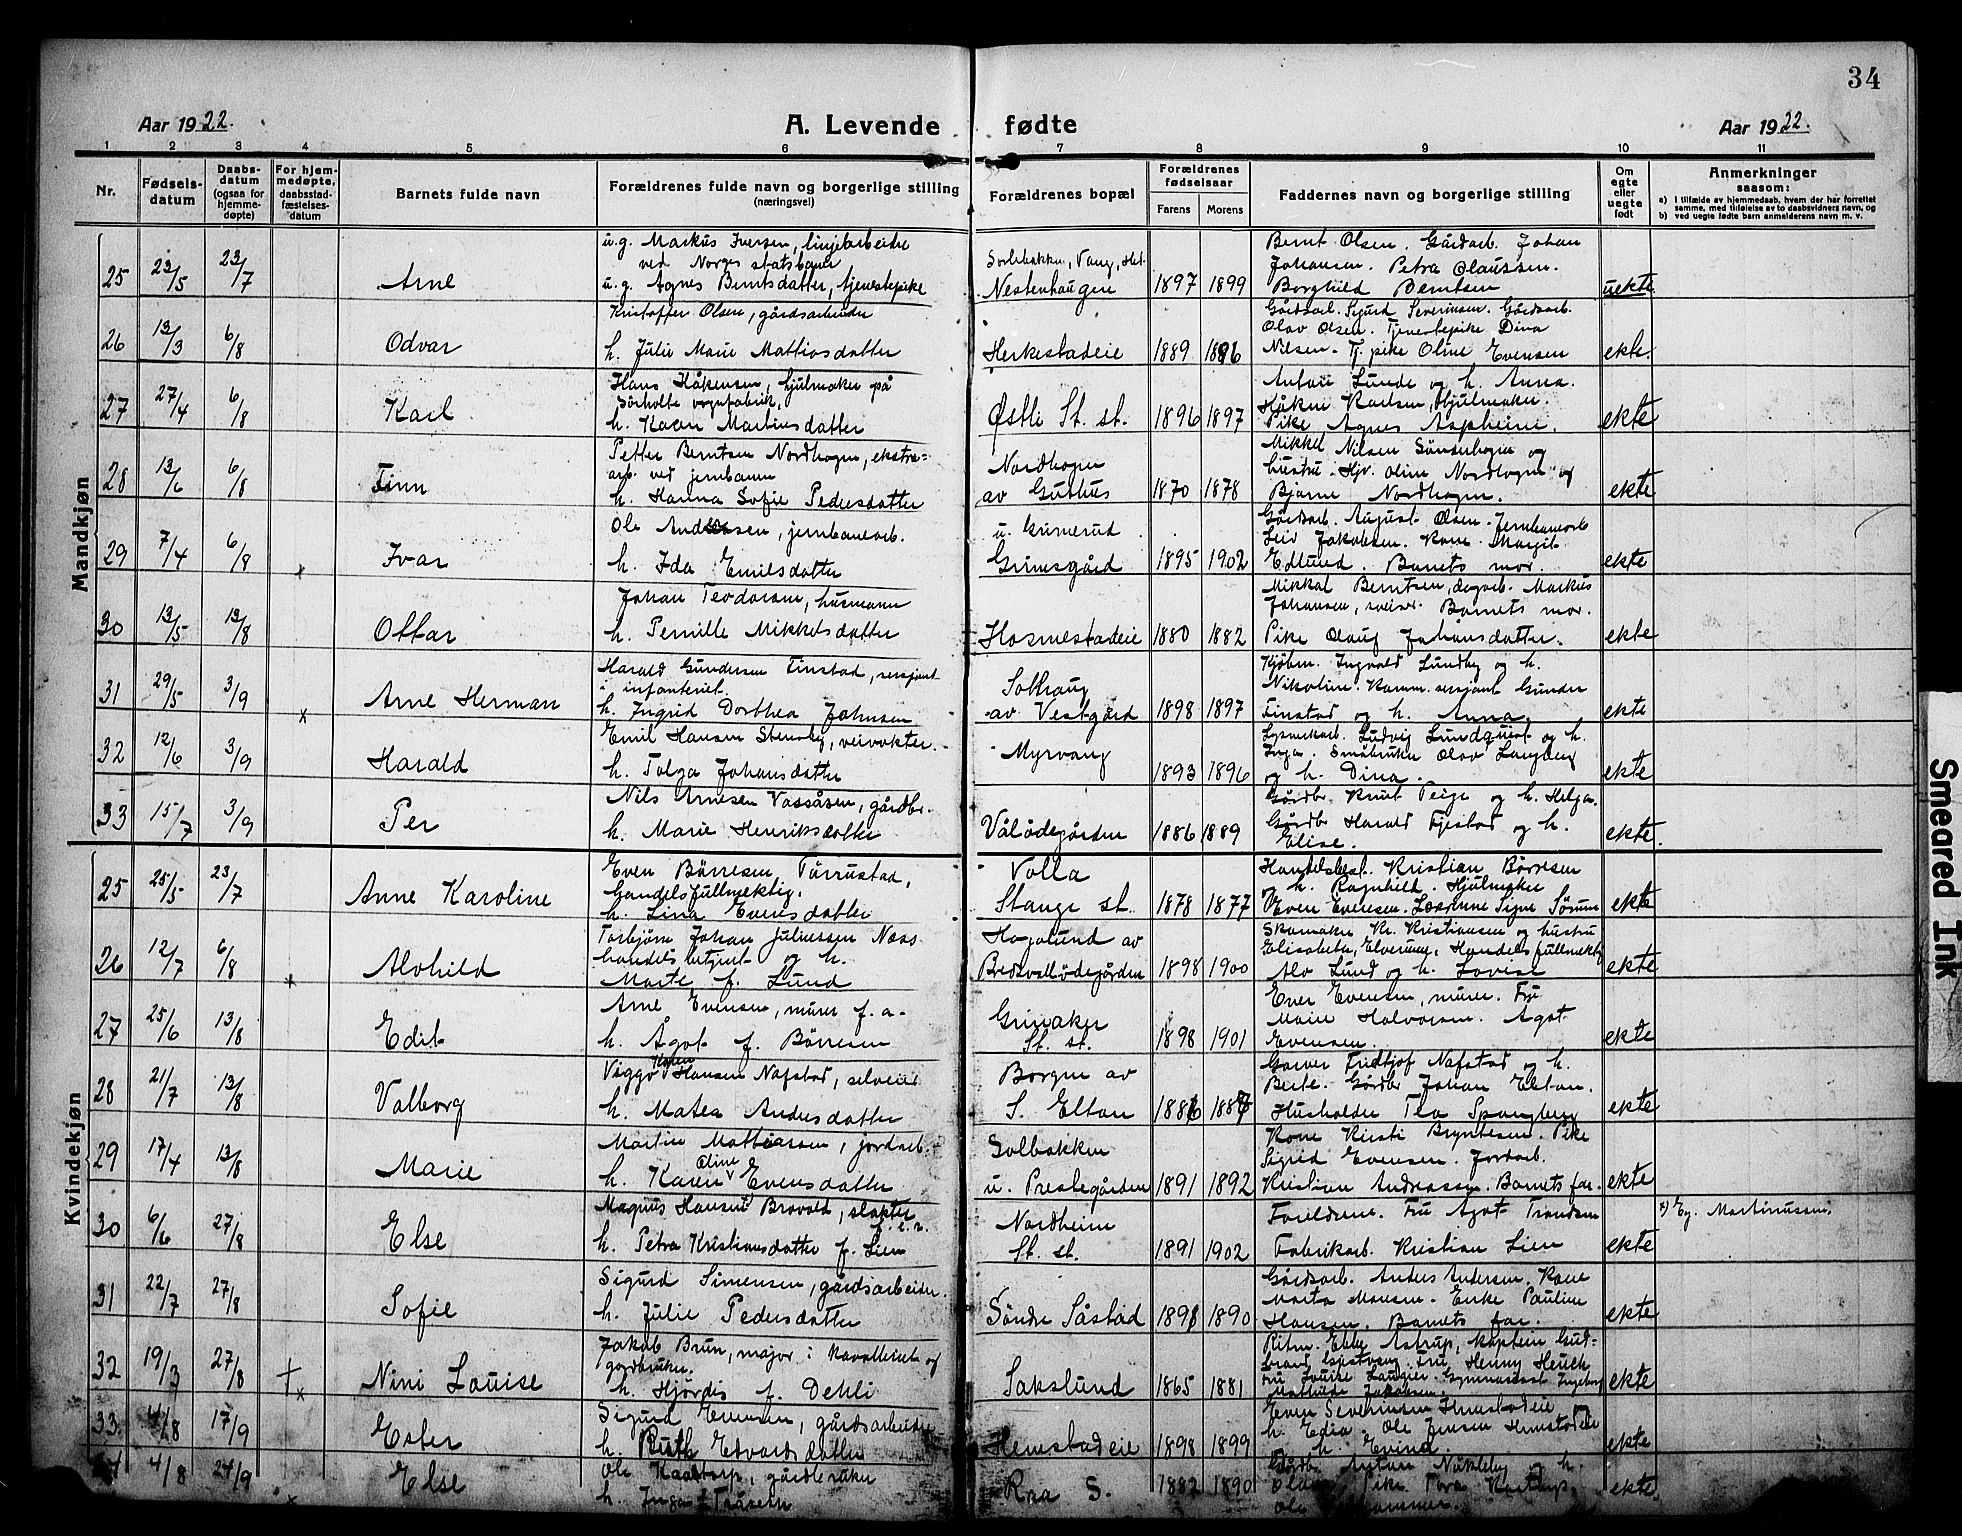 34
Aar 1922.
A. Levende fødte
Aar 1922.
1 2 3 4 5 6 7 8 9 10 11
Nr.
Fødsels-
datum
Daabs-
datum
(ogsaa for
hjemme-
døpte)
For hjem-
medøpte,
daabsstad-
fæstelses-
datum
Barnets fulde navn
Forældrenes fulde navn og borgerlige stilling
(næringsvei)
Forældrenes bopæl
Forældrenes
fødselsaar
Farens Morens
Faddernes navn og borgerlige stilling
Om
egte
eller
uegte
født
Anmerkninger
saasom:
a) i tilfælde av hjemmedaab, hvem der har forrettet
samme, med tilføielse av to daabsvidners navn, og
b) ved uegte fødte barn anmelderens navn m. v.
Mandkjøn
25 23/5 23/7 Arne
u.g. Markus Iversen, linjearbeider
ved Norges statsbaner
u.g. Agnes Berntsdatter, tjenestepike
Solbakken, Vang, Hed.
Nestenhaugen 1897 1899
Bernt Olsen. Gårdarb. Johan
Johansen. Petra Olaussen.
Borghild Berntsen
uekte
26 13/3 6/8 Odvar
Kristoffer Olsen, gårdsarbeider
h. Julie Marie Mattiasdatter
Herkestadeie 1889 1896
Gårdsarb. Sigurd Severinsen. Gårdsarb.
Olav Olsen. Tjenestepike Dina
Nilsen. Tj. pike Oline Evensen
ekte.
27 27/4 6/8 Karl
Hans Håkensen, hjulmaker på
Sörholte vognfabrik,
h. Karen Martinsdatter
Østli St. st. 1896 1897
Anton Lunde og h. Anna.
Håken Karlsen, Hjulmaker.
Pike Agnes Aspheim.
ekte
28 13/6 6/8 Finn
Petter Berntsen Nordhagen, ekstra-
arb. ved jernbanen
h. Hanna Sofie Pedersdatter
Nordhagen
av Guåhus 1870 1878
Mikkel Nilsen Sönderhagen og
hustru. Hjv. Oline Nordhagen og
Bjarne Nordhagen.
ekte
29 7/4 6/8 x Ivar
Ole Andersen, jernbanearb.
h. Ida Emilsdatter
u. Grimerud
Grimsgård 1895 1902
Gårdsarb. August Olsen. Jernbanearb.
Leiv Jakobsen. Kone Margit
Edlund. Barnets mor.
ekte
30 13/5 13/8 Ottar
Johan Teodorsen, husmann
h. Pernille Mikkelsdatter
Hosmestadeie 1880 1882
Mikkal Berntsen, dagarb. Markus
Johansen, sveiser. Barnets mor.
Pike Olaug Johansdatter.
ekte
31 29/5 3/9 x Arne Herman
Harald Gundersen Finstad, sersjant
i infanteriet.
h. Ingrid Dorthea Johnsen
Solhaug
av Vestgård 1898 1897
Kjøbm. Ingvald Lundby og h.
Nikoline. Komm. sersjant Gunder
Finstad og h. Anna.
ekte
32 12/6 3/9 Harald
Emil Hansen Stensby, veivokter.
h. Tolga Johansdatter
Myrvang 1893 1896
Ludvig Lundquist og h.
Inga. Småbruker Olav Langberg
og h. Dina.
ekte
33 15/7 3/9 Per
Nils Arnesen Vassåsen, gårdbr.
h. Marie Henriksdatter
Vålödegården 1886 1889
Gårdbr. Knut Peige og h. Helga.
Gårdbr Harald Fjestad og h.
Elise.
ekte.
Kvindekjøn
25 25/5 23/7 Anne Karoline
Even Börresen Torrustad,
handelsfullmektig,
h. Lina Evensdatter
Volla
Stange st. 1878 1877
Handelsbest. Kristian Børresen
og h. Ragnhild. Hjulmaker
Even Evensen. Lærerinne Signe Sörum
ekte
26 12/7 6/8 x Alvhild
Torbjörn Johan Juliussen Næss
handelsbetjent og h.
Marte f. Lund
Hoglund av
Bredvollödegården 1898 1900
Skomaker Kr. Kristiansen og hustru
Elisabeth, Elverum. Handelsfullmektig
Alv Lund og h. Lovise
ekte
27 25/6 13/8 Edit
Arne Evensen, murer f.a.
h. Ågot f. Börresen
Grimaker
St. st. 1898 1901
Even Evensen, murer. Fru
Marie Halvorsen. Agot
Evensen.
ekte
28 21/7 13/8 Valborg
Viggo Hansen Nafstad, selveier
h. Matea Andersdatter
Borgen av
S. Elton 1886 1887
Garver Fridtjof Nafstad og h.
Berte. Gårdbr Johan Elton.
Husholder Tea Spangberg
ekte
29 17/4 13/8 Marie
Martin Mattiassen, jordarb.
h. Karen Oline Evensdatter
Solbakken
u. Prestegården 1891 1892
Kone Kirsti Bryntesen. Pike
Sigrid Evensen. Jordarb.
Kristian Andreassen. Barnets far.
ekte
30 6/6 27/8 Else
Magnus Hansen Bravold, slakter
h. Petra Kristiansdatter f. Lien
Nordheim
St. st. 1891 1902
Foreldrene. Fru Agot Trondsen
Fabrikarb. Kristian Lien
ekte
x) Eg. Martinussen.
31 22/7 27/8 Sofie
Sigurd Simensen, gårdsarbeider.
h. Julie Pedersdatter
Söndre Såstad 1891 1890
Gårdsarb. Anders Andersen. Kone
Marta Monsen. Enke Pauline
Hansen. Barnets far.
ekte
32 19/3 27/8 † x Nini Louise
Jakob Brun, major i kavalleriet og
gårdbruker.
h. Hjördis f. Dehli
Sakslund 1865 1881
Ritm. Ebbe Astrup, kaptein Gud-
brand Fru Henny Heuch
Fru Louise Gymnasiast Ingeborg
Jakobsen.
ekte
33 4/8 17/9 Ester
Sigurd Evensen, gårdsarbeider
h. Ruth Edvardsdatter
Hemstadeie 1898 1899
Even Severinsen Hemstadeie
h. Edia. Ole Jensen Hemstadeie
h. Evind.
ekte
34 4/8 24/9 x Else
Ole Kaatorp, gårdbruker
h. Inga f. Tråseth
Raa S. 1882 1890
Gårdbr. Anton Näkleby og h.
Pike Tora Kaatorp.
Ole
ekte.
Smeared Ink